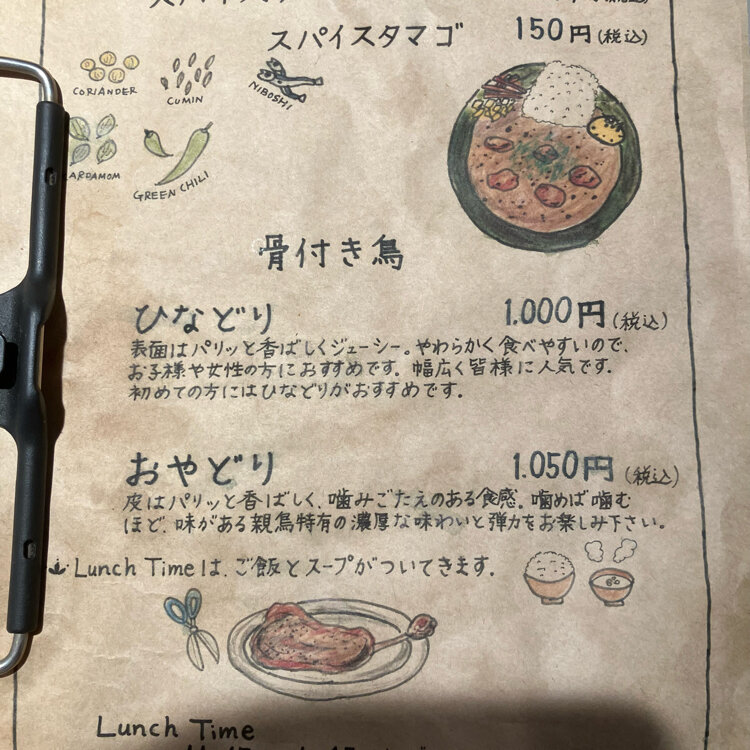 スパイスタマゴ 150円(税込)
CORIANDER
CUMIN
NIBOSHI
ARDAMOM
GREEN CHILI
骨付き鳥
ひなどり 1.000円(税込)
表面はパリッと香ばしくジューシー。やわらかく食べやすいので、
お子様や女性の方におすすめです。幅広く皆様に人気です。
初めての方にはひなどりがおすすめです。
おやどり 1.050円(税込)
皮はパリッと香ばしく、噛みごたえのある食感。噛めば噛む
ほど、味がある親鳥特有の濃厚な味わいと弾力をお楽しみ下さい。
Lunch Timeは、ご飯とスープがついてきます。
Lunch Time